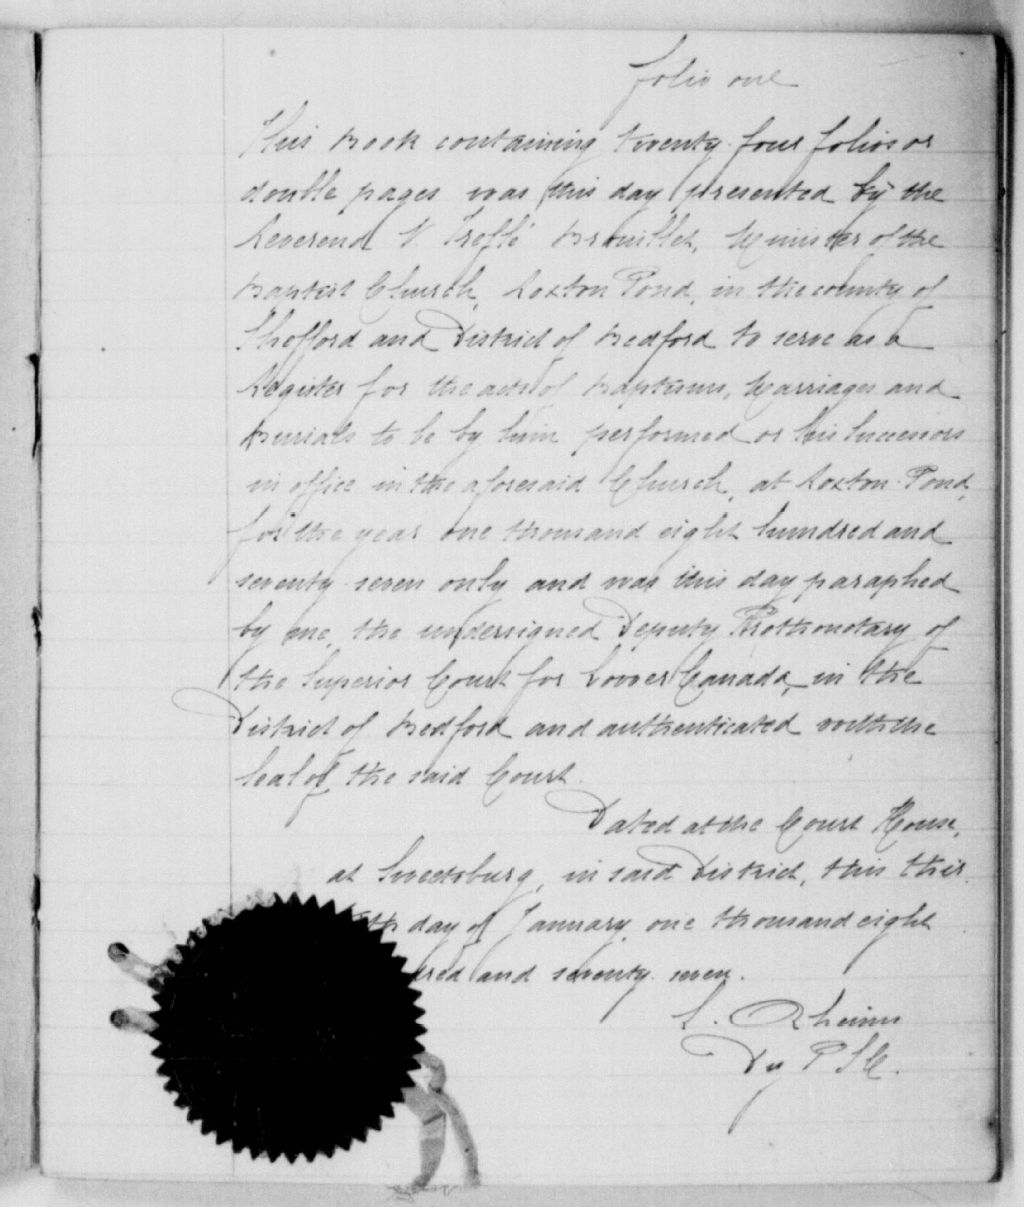 folio one
This Book containing twenty four folios or
double pages was this day presented by the
Reverend Trefflé Brouillet, Minister of the
Baptist Church, Roxton Pond, in the county of
Shefford and District of Bedford to serve as a
Register for the acts of Baptisms, Marriages and
Burials to be by him performed or his Successors
in office in the aforesaid Church, at Roxton Pond,
for the year one thousand eight hundred and
seventy seven only and was this day paraphed
by me, the undersigned Deputy Prothonotary of
the Superior Court for Lower Canada, in the
District of Bedford and authenticated with the
Seal of the said Court.
Dated at the Court House,
at Sweetsburg, in said District, this thir
day of January, one thousand eight
red and seventy seven.
Dy P S C.